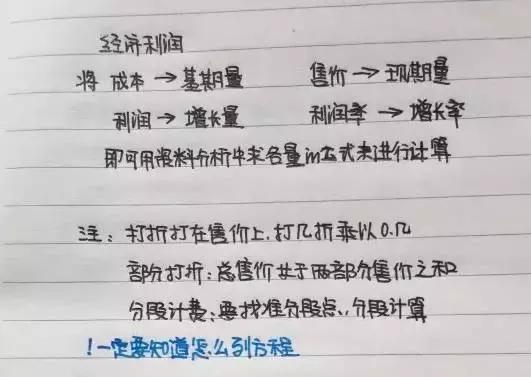 经济利润
将 成本 → 基期量 售价 → 现期量
利润 → 增长量 利润率 → 增长率
即可用资料分析中求各量in公式来进行计算
注：打折打在售价上，打几折乘以0.几
部分打折：总售价等于两部分售价之和
分段计费：要找准分段点，分段计算
！一定要知道怎么列方程